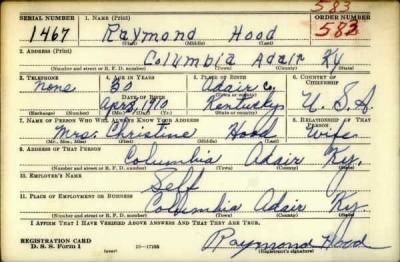 583
SERIAL NUMBER 1. NAME (Print) ORDER NUMBER
1467 Raymond Hood 583
(First) (Middle) (Last)
2. ADDRESS (Print)
Columbia Adair Ky
(Number and street or R. F. D. number) (Town) (County) (State)
3. TELEPHONE 4. AGE IN YEARS 5. PLACE OF BIRTH 6. COUNTRY OF CITIZENSHIP
None 30 Adair Co.
DATE OF BIRTH (Town or county)
Apr 3, 1910 Kentucky U. S. A.
(Exchange) (Number) (Mo.) (Day) (Yr.) (State or country)
7. NAME OF PERSON WHO WILL ALWAYS KNOW YOUR ADDRESS 8. RELATIONSHIP OF THAT PERSON
Mrs. Christine Hood Wife
(Mr., Mrs., Miss) (First) (Middle) (Last)
9. ADDRESS OF THAT PERSON
Columbia Adair Ky.
(Number and street or R. F. D. number) (Town) (County) (State)
10. EMPLOYER'S NAME
Self
11. PLACE OF EMPLOYMENT OR BUSINESS
Columbia Adair Ky.
(Number and street or R. F. D. number) (Town) (County) (State)
I AFFIRM THAT I HAVE VERIFIED ABOVE ANSWERS AND THAT THEY ARE TRUE.
REGISTRATION CARD
D. S. S. FORM 1 Raymond Hood
(Registrant's signature)